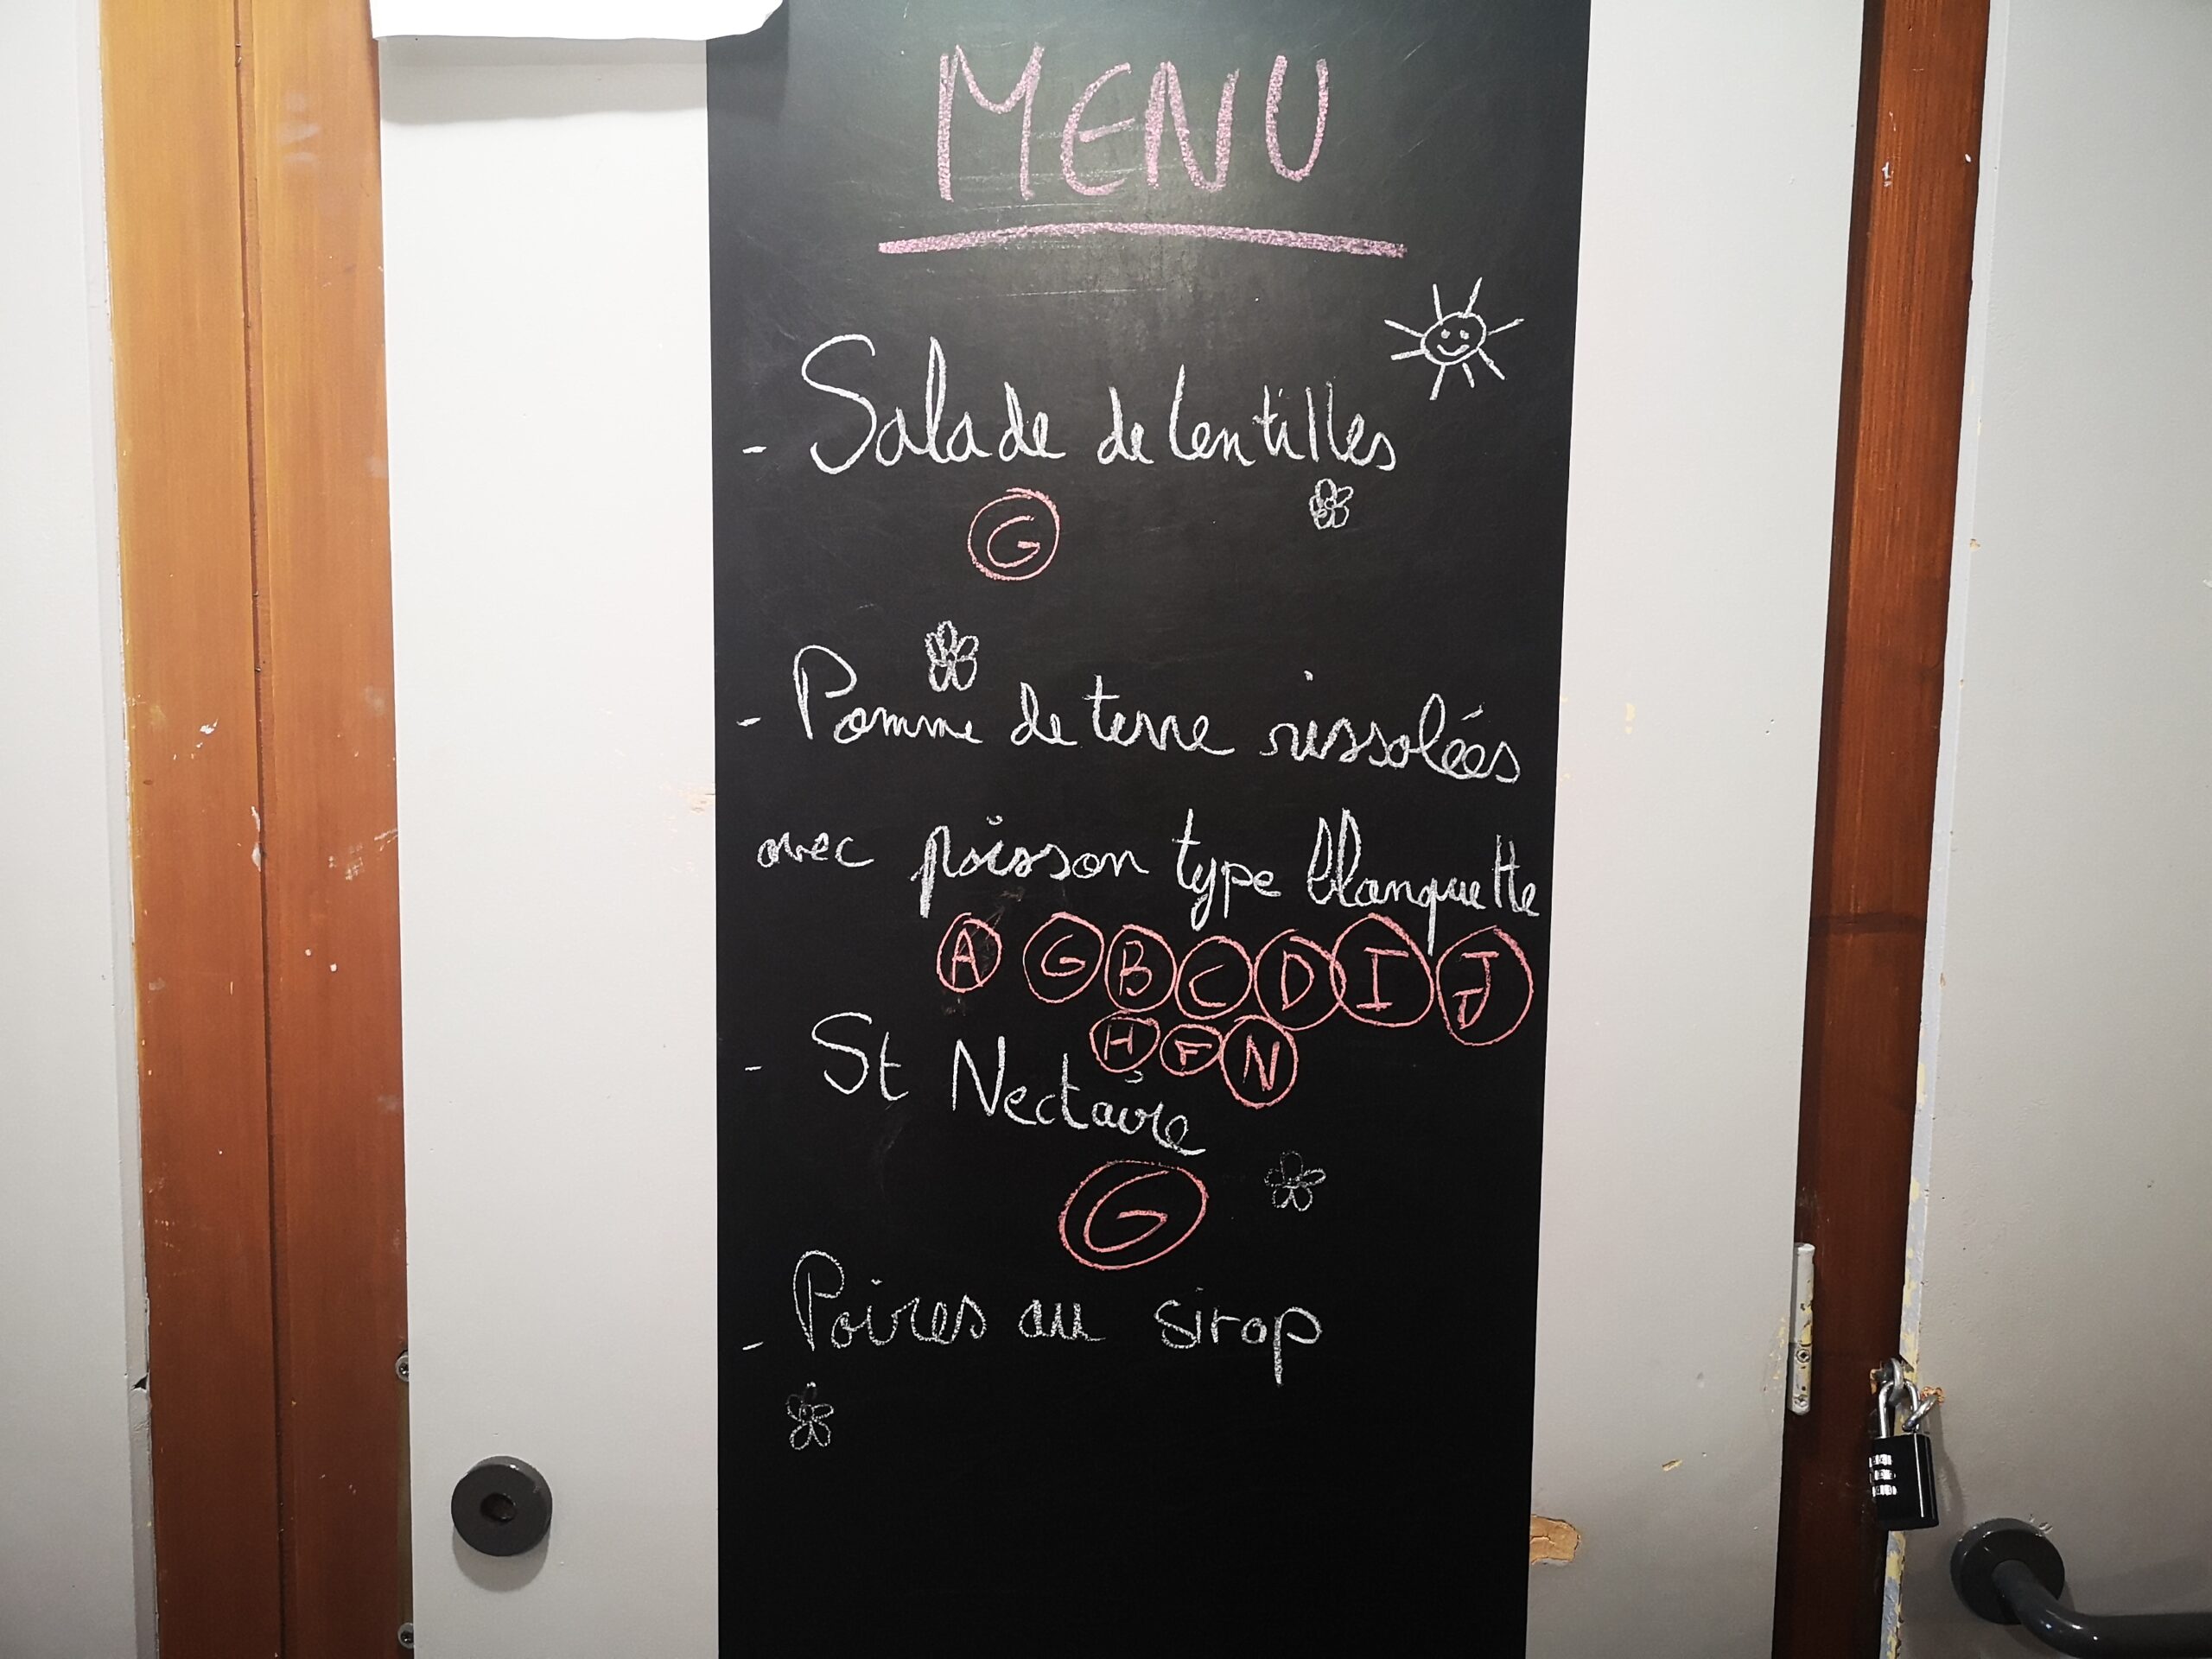 MENU
- Salade de lentilles
G
- Pomme de terre rissolées
avec poisson type blanquette
A G B C D I J
H F N
- St Nectaire
G
- Poires au sirop